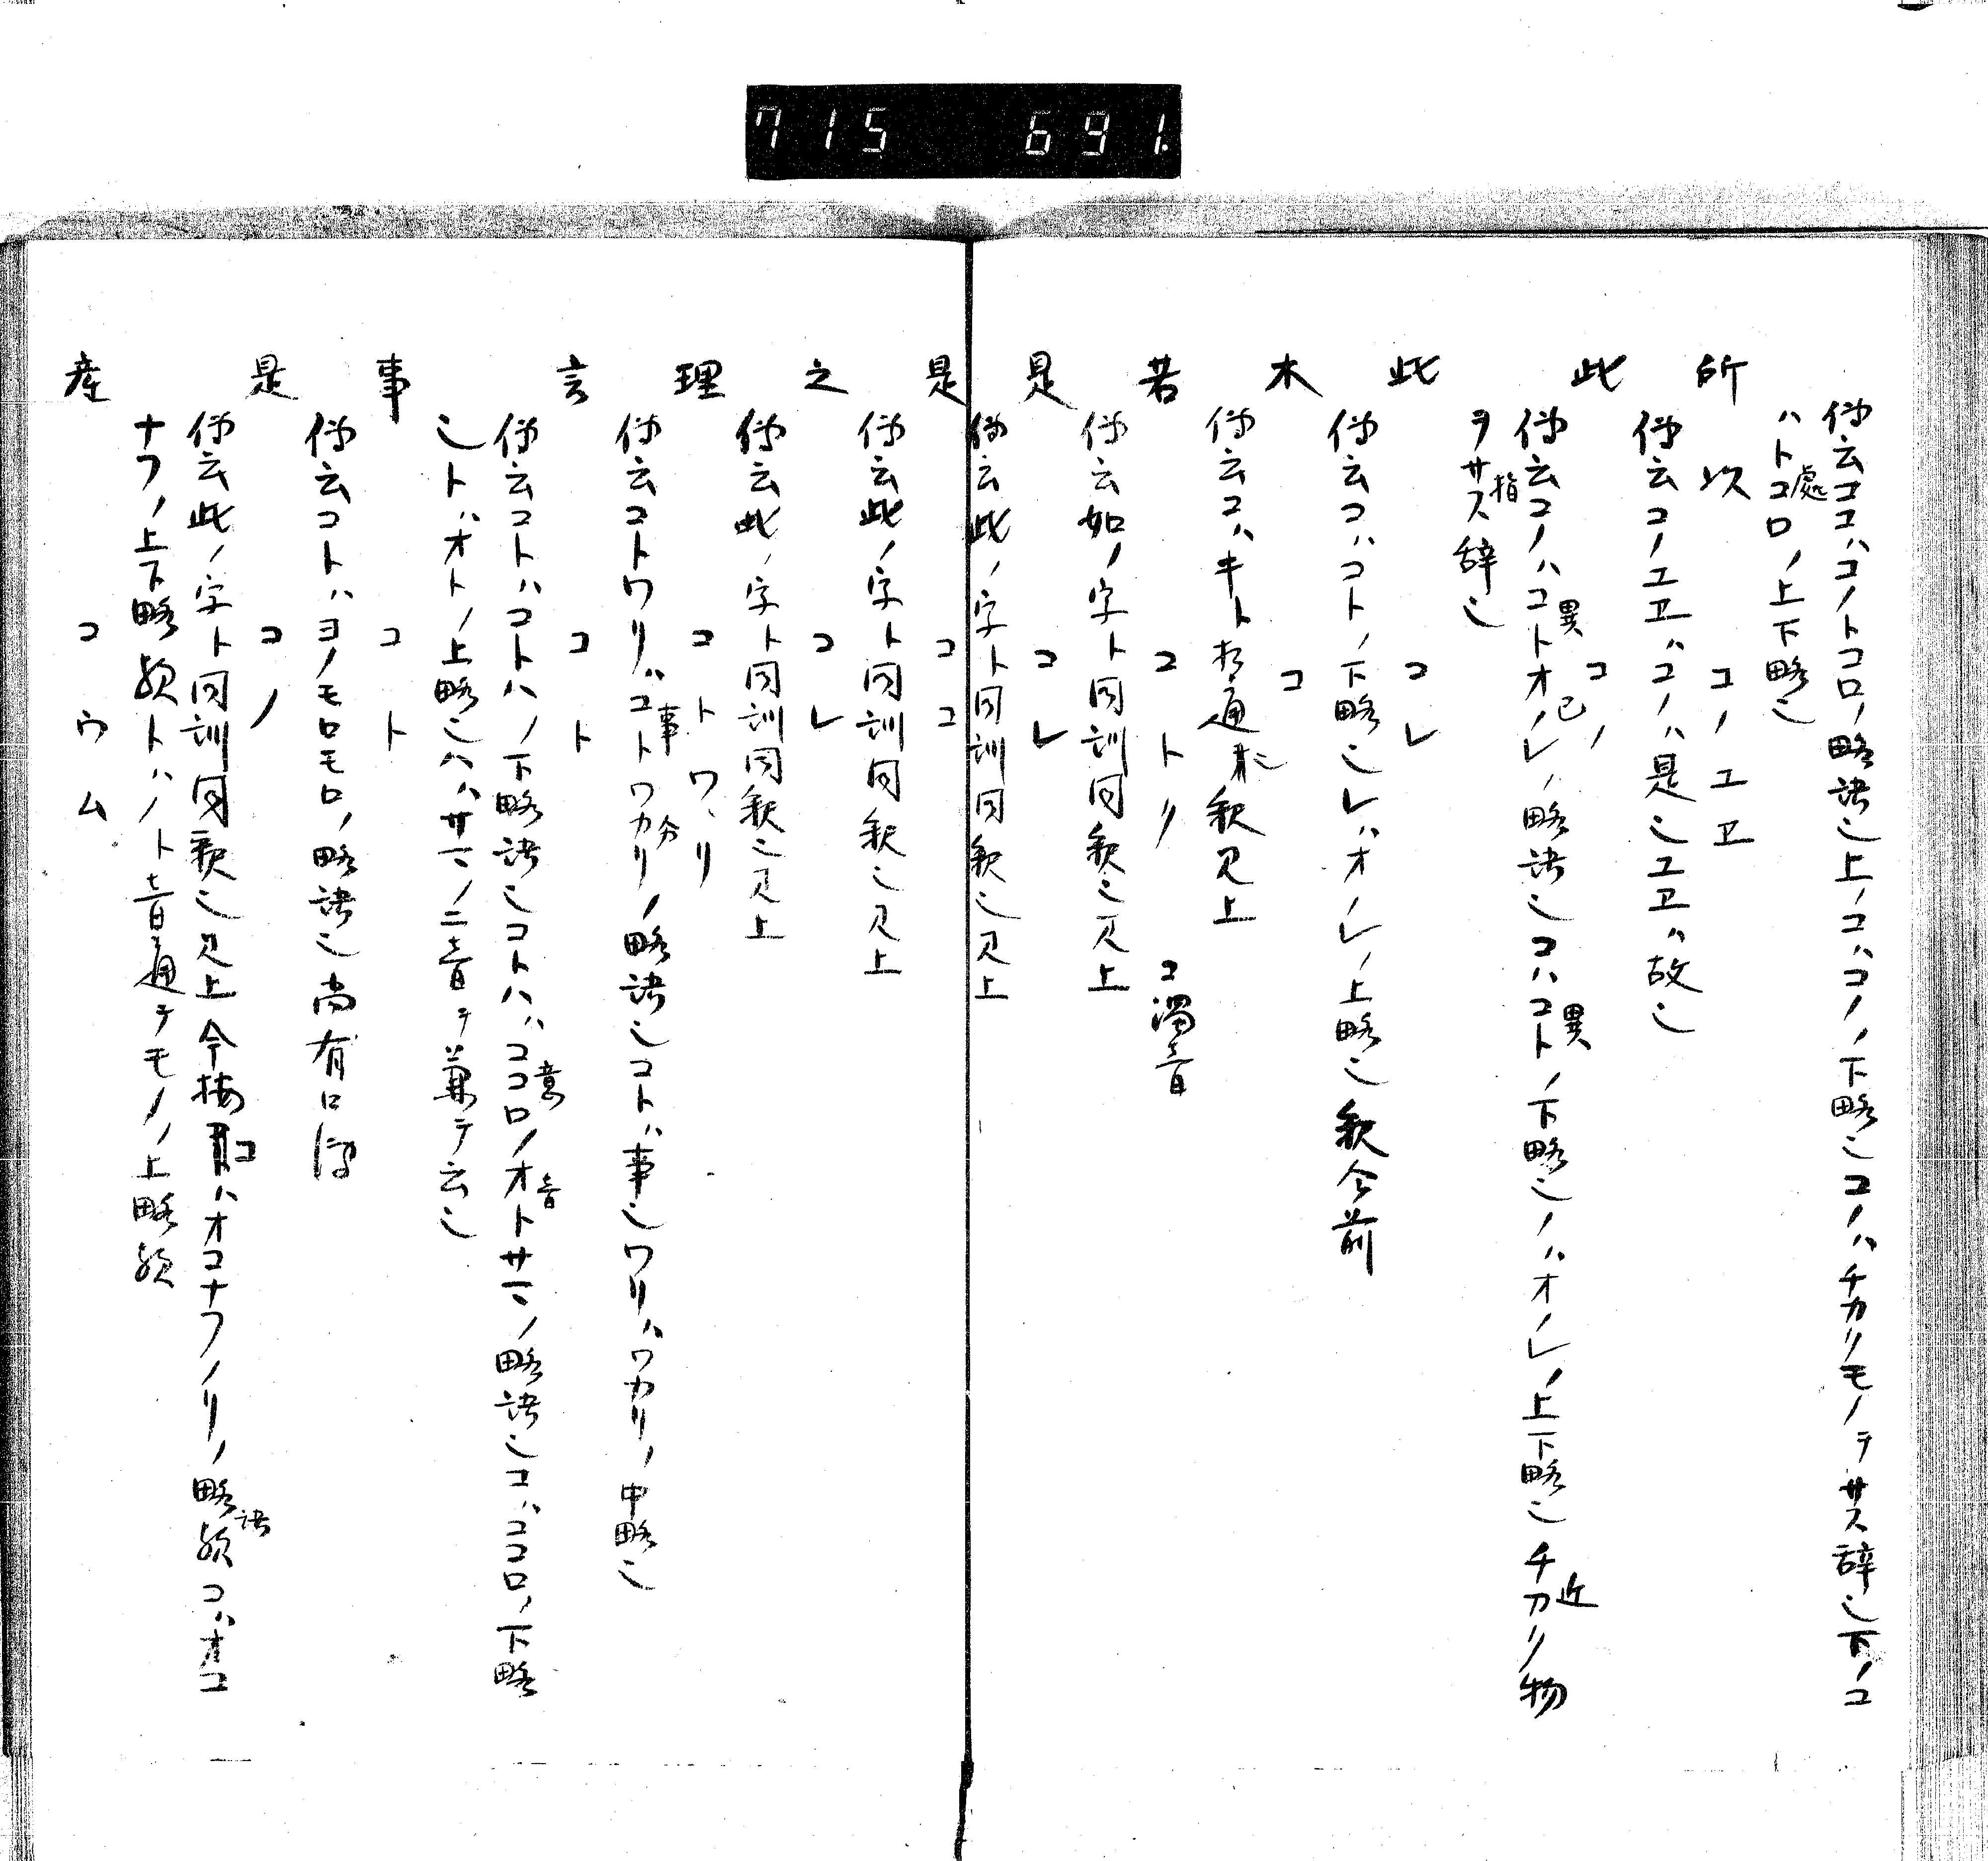 715 691.
伊云ココハコノトコロノ略語也上ノコハコノノ下略也コノハチカクノモノヲサス辞也下ノコ
ハトコロ處ノ上下略也
所以 コノユヱ
伊云コノユヱハコノハ是也ユヱハ故也
此 コノ
伊云コノハコト異オノレ己ノ略語也コハコト異ノ下略也ノハオノレノ上下略也チカク近ノ物
ヲサス指辞也
此 コレ
伊云コハコトノ下略也レハオノレノ上略也釈仝前
木 コ
伊云コハキト相通也釈見上
若 コトク コ濁音
伊云如ノ字ト同訓同釈也見上
是 コレ
伊云此ノ字ト同訓同釈也見上
是 ココ
伊云此ノ字ト同訓同釈也見上
之 コレ
伊云此ノ字ト同訓同釈也見上
理 コトワリ
伊云コトワリハコト事ワカリ分ノ略語也コトハ事也ワリハワカリノ中略也
言 コト
伊云コトハコトハノ下略語也コトハハココロ意ノオト音サマノ略語也コハココロノ下略
也トハオトノ上略也ハハサマノ二音ヲ兼テ云也
事 コト
伊云コトハヨノモロモロノ略語也尚有口傳
是 コノ
伊云此ノ字ト同訓同釈也見上今按コハオコナフノリノ略語歟コハオコ
ナフノ上下略歟トハノト音通テモノノ上略歟
産 コウム